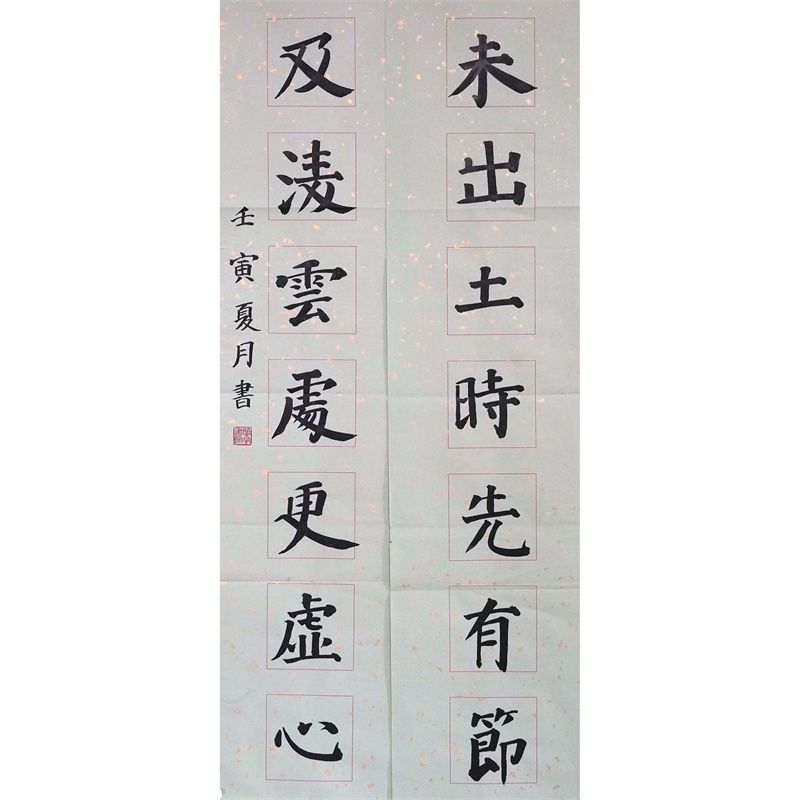 未出土時先有節
及淩雲處更虛心
壬寅夏月書